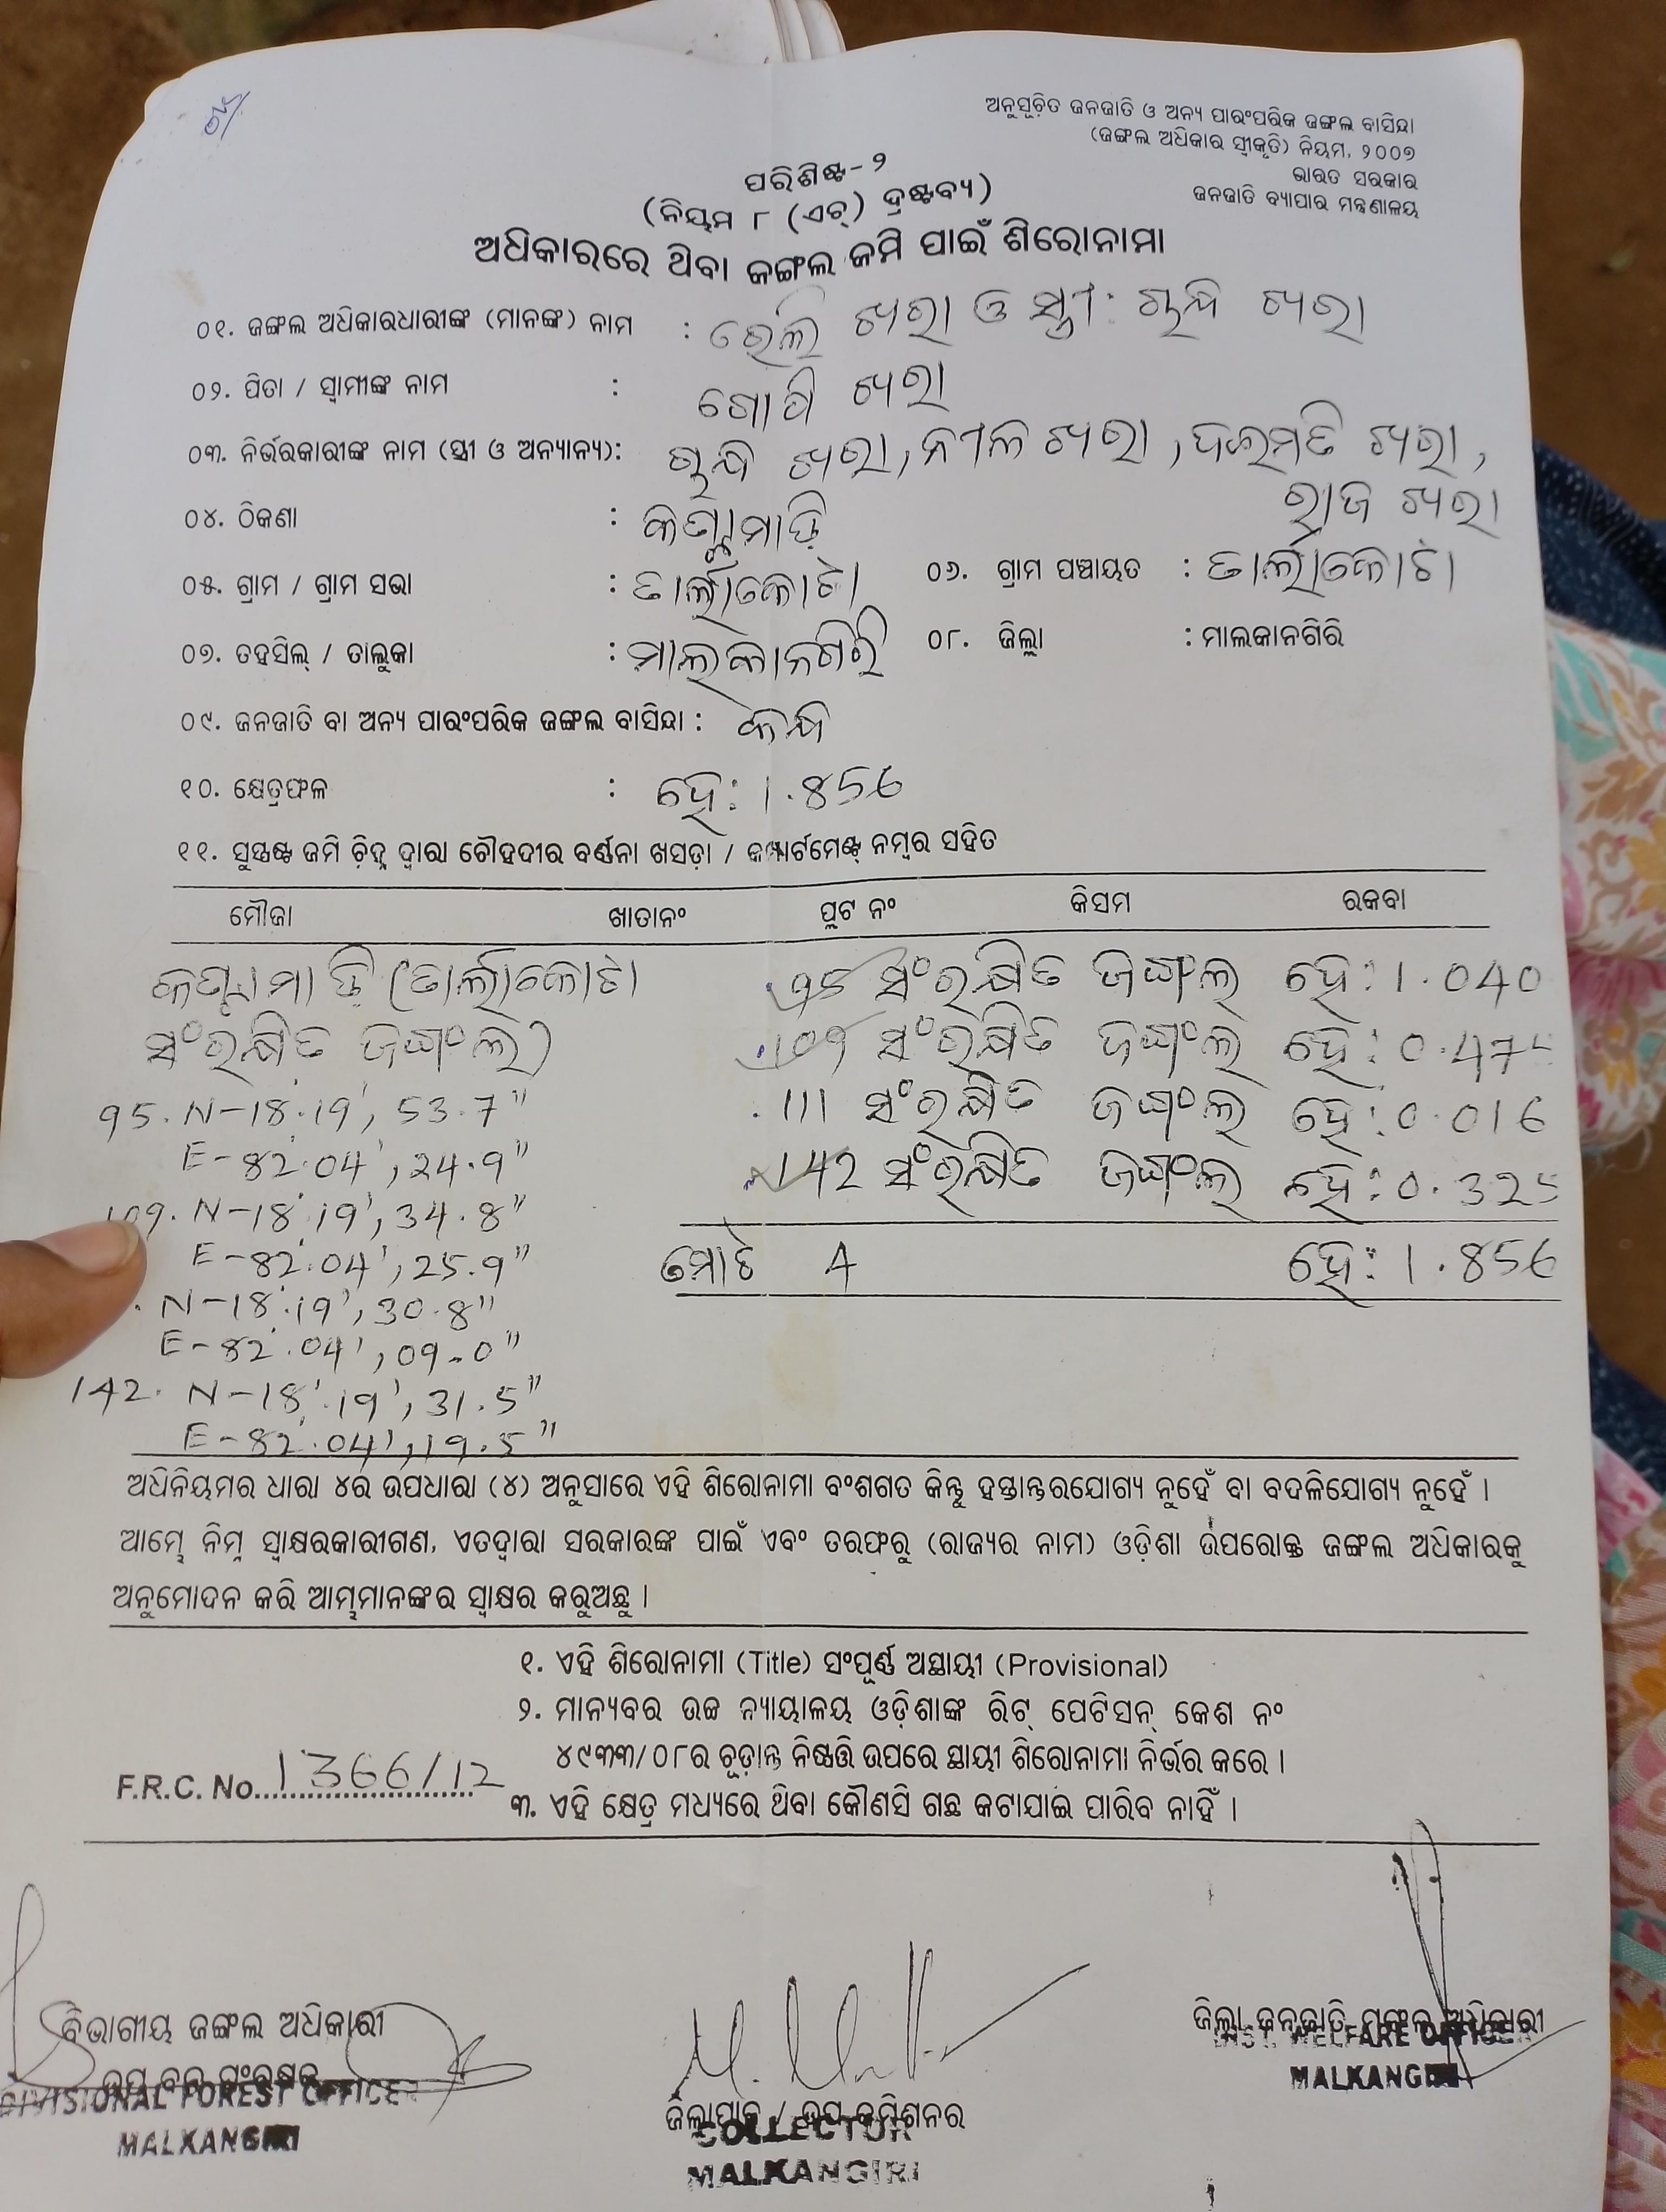 ଅନୁସୂଚିତ ଜନଜାତି ଓ ଅନ୍ୟ ପାରଂପରିକ ଜଙ୍ଗଲ ବାସିନ୍ଦା
(ଜଙ୍ଗଲ ଅଧିକାର ସ୍ୱୀକୃତି) ନିୟମ, ୨୦୦୭
ଭାରତ ସରକାର
ଜନଜାତି ବ୍ୟାପାର ମନ୍ତ୍ରଣାଳୟ
ପରିଶିଷ୍ଟ-୨
(ନିୟମ ୮ (ଏଚ୍) ଦ୍ରଷ୍ଟବ୍ୟ)
ଅଧିକାରରେ ଥିବା ଜଙ୍ଗଲ ଜମି ପାଇଁ ଶିରୋନାମା
୦୧. ଜଙ୍ଗଲ ଅଧିକାରଧାରୀଙ୍କ (ମାନଙ୍କ) ନାମ : ଖରା ଓ ସ୍ତ୍ରୀ: ଖରା
୦୨. ପିତା / ସ୍ୱାମୀଙ୍କ ନାମ : ଗୋପି ଖରା
୦୩. ନିର୍ଭରକାରୀଙ୍କ ନାମ (ସ୍ତ୍ରୀ ଓ ଅନ୍ୟାନ୍ୟ): ଖରା, ନୀଳ ଖରା, ଖରା,
ରାଜ ଖରା
୦୪. ଠିକଣା :
୦୫. ଗ୍ରାମ / ଗ୍ରାମ ସଭା : ତାର୍ଲାକୋଟା ୦୬. ଗ୍ରାମ ପଞ୍ଚାୟତ : ତାର୍ଲାକୋଟା
୦୭. ତହସିଲ୍ / ତାଲୁକା : ମାଲକାନଗିରି ୦୮. ଜିଲ୍ଲା : ମାଲକାନଗିରି
୦୯. ଜନଜାତି ବା ଅନ୍ୟ ପାରଂପରିକ ଜଙ୍ଗଲ ବାସିନ୍ଦା : କନ୍ଧ
୧୦. କ୍ଷେତ୍ରଫଳ : ହେ: 1.856
୧୧. ସୁସ୍ପଷ୍ଟ ଜମି ଚିହ୍ନ ଦ୍ୱାରା ଚୌହଦୀର ବର୍ଣ୍ଣନା ଖସଡ଼ା / କମ୍ପାର୍ଟମେଣ୍ଟ ନମ୍ବର ସହିତ
ମୌଜା ଖାତାନଂ ପ୍ଲଟ ନଂ କିସମ ରକବା
(ତାର୍ଲାକୋଟା ସଂରକ୍ଷିତ ଜଙ୍ଗଲ ହେ: 1.040
ସଂରକ୍ଷିତ ଜଙ୍ଗଲ) 109 ସଂରକ୍ଷିତ ଜଙ୍ଗଲ ହେ: 0.475
95. N-18°.19', 53.7" 111 ସଂରକ୍ଷିତ ଜଙ୍ଗଲ ହେ: 0.016
E-82°.04', 24.9" 142 ସଂରକ୍ଷିତ ଜଙ୍ଗଲ ହେ: 0.325
109. N-18°.19', 34.8"
E-82°.04', 25.9" ମୋଟ 4 ହେ: 1.856
N-18°.19', 30.8"
E-82°.04', 09.0"
142. N-18°.19', 31.5"
E-82°.04', 19.5"
ଅଧିନିୟମର ଧାରା ୪ର ଉପଧାରା (୪) ଅନୁସାରେ ଏହି ଶିରୋନାମା ବଂଶଗତ କିନ୍ତୁ ହସ୍ତାନ୍ତରଯୋଗ୍ୟ ନୁହେଁ ବା ବଦଳିଯୋଗ୍ୟ ନୁହେଁ ।
ଆମ୍ଭେ ନିମ୍ନ ସ୍ୱାକ୍ଷରକାରୀଗଣ, ଏତଦ୍ୱାରା ସରକାରଙ୍କ ପାଇଁ ଏବଂ ତରଫରୁ (ରାଜ୍ୟର ନାମ) ଓଡ଼ିଶା ଉପରୋକ୍ତ ଜଙ୍ଗଲ ଅଧିକାରକୁ
ଅନୁମୋଦନ କରି ଆମ୍ଭମାନଙ୍କର ସ୍ୱାକ୍ଷର କରୁଅଛୁ ।
୧. ଏହି ଶିରୋନାମା (Title) ସଂପୂର୍ଣ୍ଣ ଅସ୍ଥାୟୀ (Provisional)
୨. ମାନ୍ୟବର ଉଚ୍ଚ ନ୍ୟାୟାଳୟ ଓଡ଼ିଶାଙ୍କ ରିଟ୍ ପେଟିସନ୍ କେଶ ନଂ
୪୯୩୩/୦୮ର ଚୂଡ଼ାନ୍ତ ନିଷ୍ପତ୍ତି ଉପରେ ସ୍ଥାୟୀ ଶିରୋନାମା ନିର୍ଭର କରେ ।
F.R.C. No. 1366/12
୩. ଏହି କ୍ଷେତ୍ର ମଧ୍ୟରେ ଥିବା କୌଣସି ଗଛ କଟାଯାଇ ପାରିବ ନାହିଁ ।
ବିଭାଗୀୟ ଜଙ୍ଗଲ ଅଧିକାରୀ
ଉପ ବନ ସଂରକ୍ଷକ
DIVISIONAL FOREST OFFICER
MALKANGIRI
ଜିଲ୍ଲାପାଳ / ଉପ କମିଶନର
COLLECTOR
MALKANGIRI
ଜିଲ୍ଲା ଜନଜାତି ମଙ୍ଗଳ ଅଧିକାରୀ
DIST. WELFARE OFFICER
MALKANGIRI